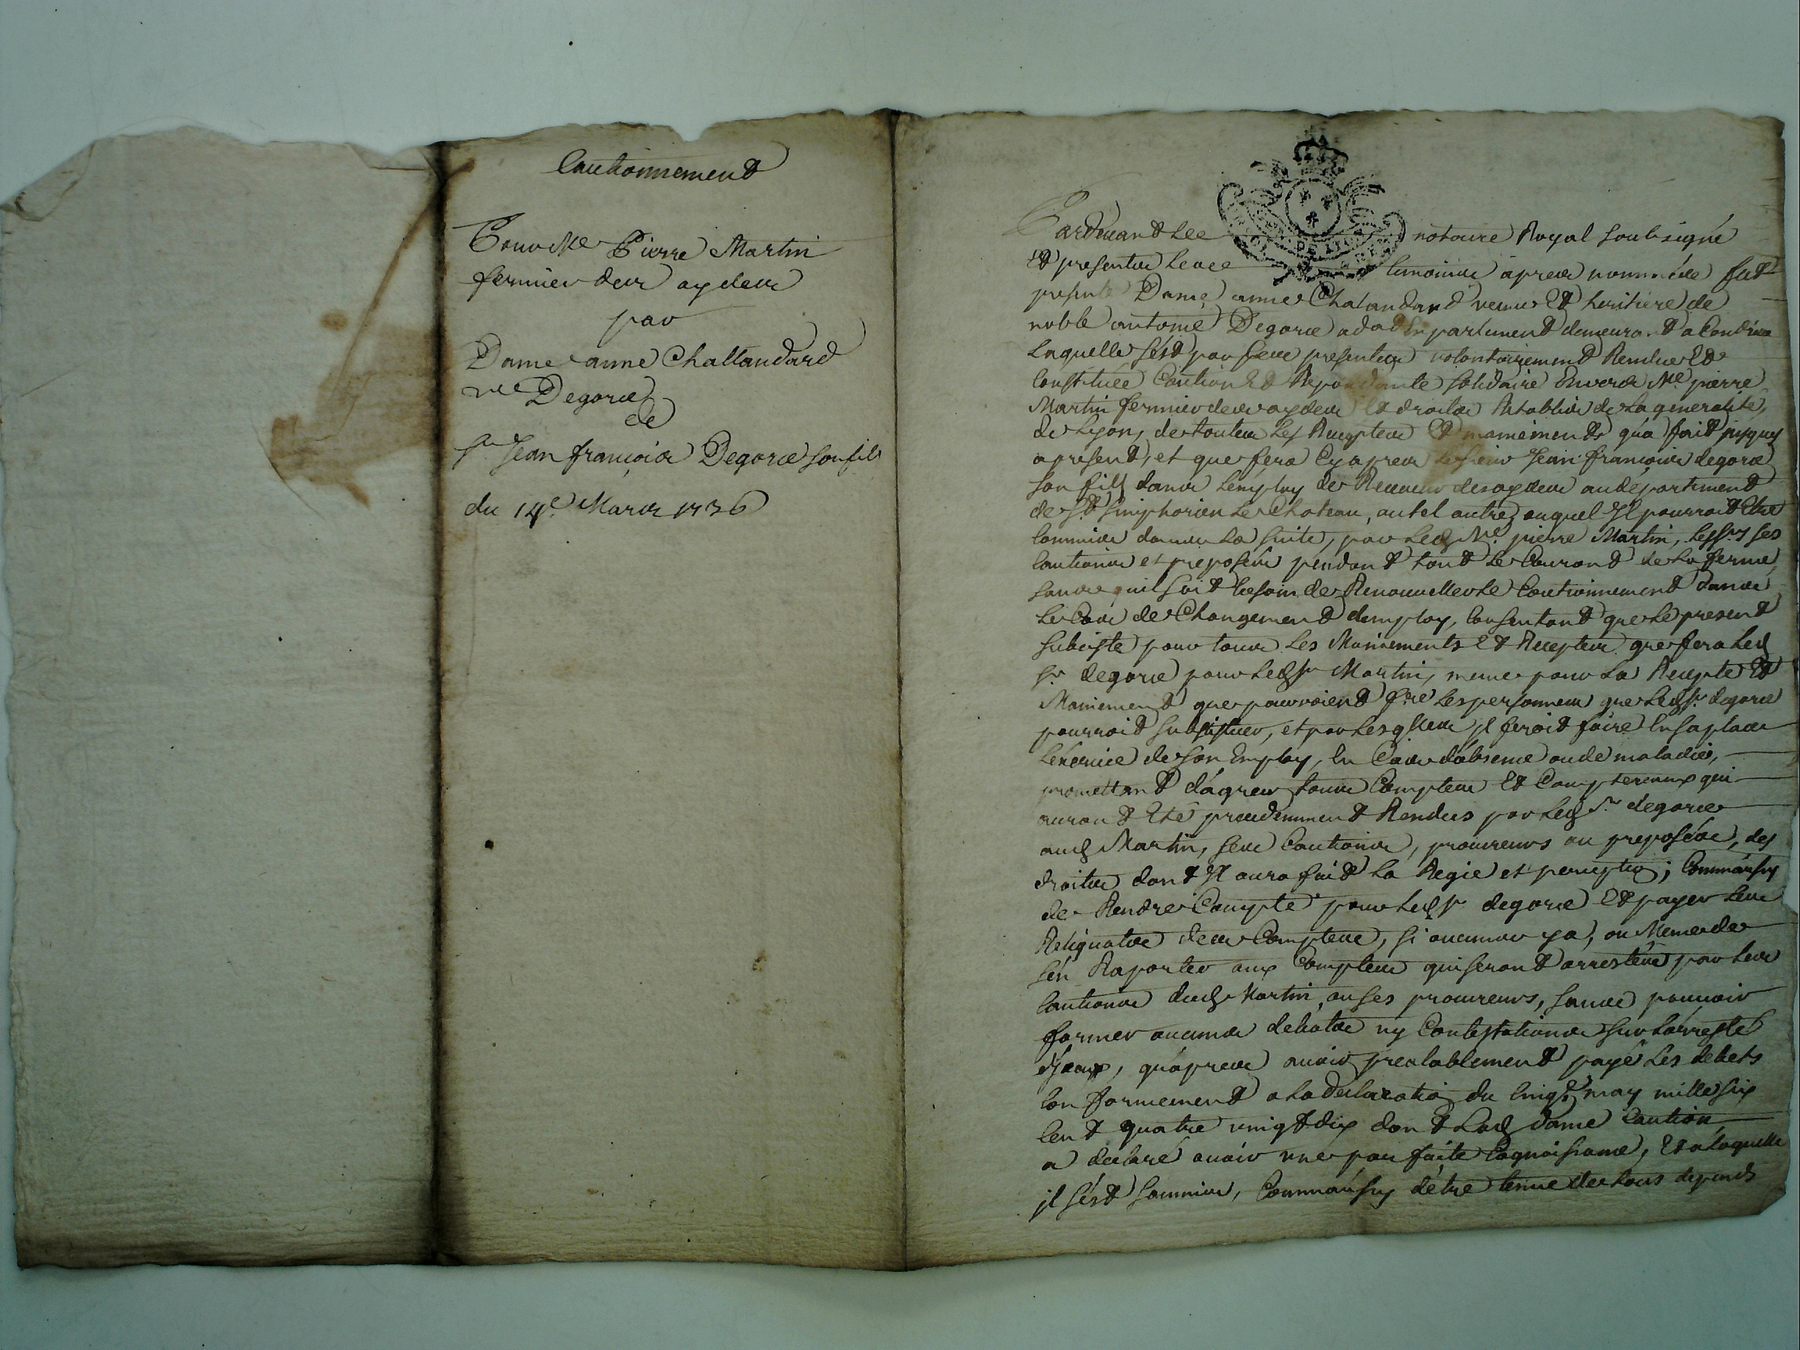 Cautionnement
Pour Me Pierre Martin
fermier des aydes
par
Dame anne Challandard
ve Degorce
et
Sr Jean françois Degorce son fils
du 14e. Mars 1736
Pardevant Les notaire Royal soubsigné
Et presente Les temoins apres nommés fut
presente Dame anne Chalandard veuve Et heritiere de
noble antome Degorce demeurant a Condrieu
Laquelle s'est par ses presentes volontairement Rendue Et
Constituée Caution Et Repondante solidaire Envers Me pierre
Martin fermier des aydes Et droits Retablis de La generalité
de Lyon, de toutes Les Receptes Et maniements qua fait jusques
a present, et que fera Cy apres Le sieur Jean françois degorce
son fils dans Lemploy de Receveur des aydes au departement
de St. simphorien Le Chateau, ou tel autre auquel Il pourroit Etre
Commis dans La suite, par Led Me. pierre Martin, Les ses
Cautions et preposés pendant tout Le Courant de La ferme,
sans quil soit besoin de Renouveller Le Cautionnement dans
Le Cas de Changement demploy, Consentant que Le present
subsiste pour tous Les Maniements Et Receptes que fera Led
Sr. degorce pour Led Sr Martin, meme pour La Recepte Et
Maniement que pouroient fre Les personnes que Led Sr. degorce
pourroit substituer, et par Lesqlles jl feroit faire En sa place
Lexercice de son Employ, En Cas d'absence ou de maladie,
promettant d'agreer tous Comptes Et Comptereaux qui
auront Eté Rendus par Led Sr. degorce
aud Martin, ses Cautions, procureurs ou preposés, des
droits dont Il aura fait La Regie et perceptio; Comm'aussy
de Rendre Compte pour Led Sr. degorce Et payer Les
Reliquats de ses Comptes, si aucuns ya, ou Meme de
s'en Raporter aux Comptes qui seront arrestés par Les
Cautions dud Martin, ou ses procureurs, sans pouvoir
former aucuns debats ny Contestations sur L'arresté
d'jceux, qu'apres avoir prealablement payé Les debets
Conformement a La Declaratio du Cinqe may mille six
Cent quatre vingt dix dont Lad Dame Caution
a declaré avoir une parfaite Cognoissance, Et a Laquelle
jl s'est soumise, Comm'aussy d'être tenue de tous depends